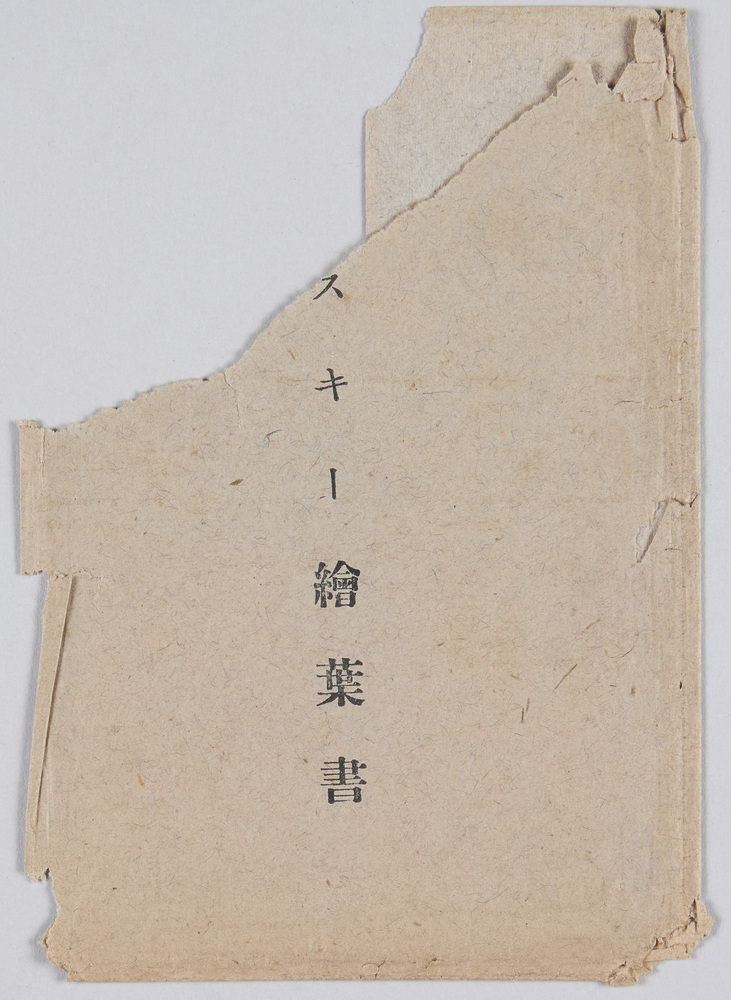 スキー繪葉書